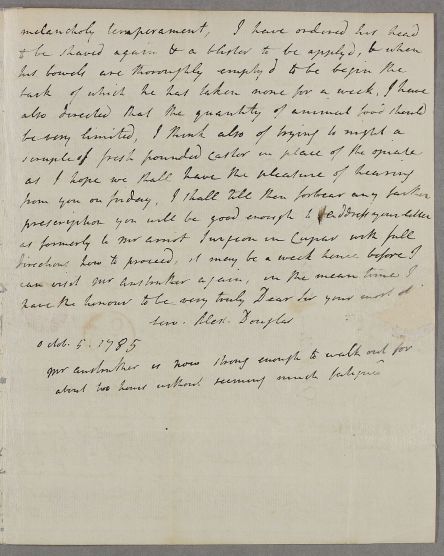 melancholy temperament, I have ordered his head
to be shaved again & a blister to be apply'd, & when
his bowels are thoroughly empty'd to be begin the
bark of which he has taken none for a week, I have
also directed that the quantity of animal food should
be very limited, I think also of trying to night a
scruple of fresh pounded Castor in place of the opiate
as I hope we shall have the pleasure of hearing
from you on friday, I shall till then forbear any farther
prescription you will be good enough to address your letter
as formerly to Mr Arnot Surgeon in Cupar with full
directions how to proceed, it may be a week hence before I
can visit Mr Anstruther again, in the mean time I
have the honour to be very truly Dear Sir your most ob.
serv. Alex. Douglas
Octob. 5. 1785
Mr Anstruther is now strong enough to walk out for
about two hours without seeming much fatigued